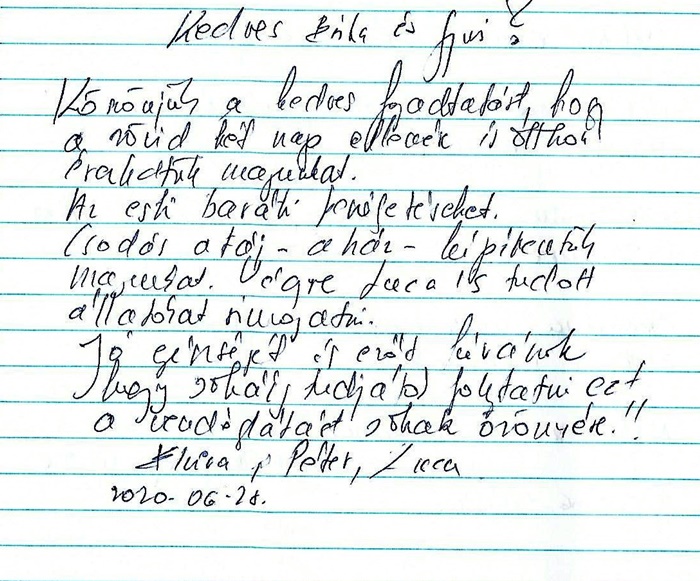 Kedves Erika és Gyuri!
Köszönjük a kedves fogadtatást, hogy
a rövid két nap ellenére is otthon
érezhettük magunkat.
Az esti baráti beszélgetéseket.
Csodás a táj - a ház - kipihentük
magunkat. Végre Luca is tudott
állatokat simogatni.
Jó egészséget és erőt kívánok
hogy sokáig tudjátok folytatni ezt
a vendéglátást sokak örömére.!!
Péter, Luca
2020-06-28.